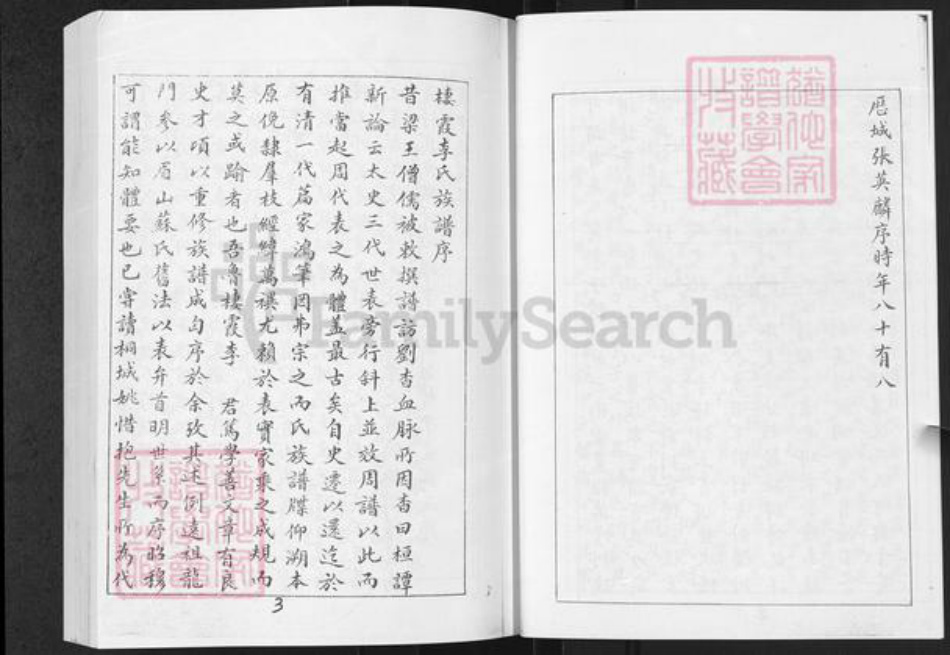 歷城張英麟序時年八十有八
棲霞李氏族譜序
昔梁王僧孺被敕撰譜訪劉杳血脉所因杳曰桓譚
新論云太史三代世表旁行斜上並效周譜以此而
推當起周代表之為體蓋最古矣自史遷以還迄於
有清一代篇家鴻筆罔弗宗之而氏族譜牒仰溯本
原俛隸羣枝經緯萬禩尤賴於表實家乘之成規而
莫之或踰者也吾魯棲霞李 君篤學善文章有良
史才頃以重修族譜成匄序於余攷其述例遠祖龍
門參以眉山蘇氏舊法以表弁首明世系而序昭穆
可謂能知體要也已嘗讀桐城姚惜抱先生所為代
3
FamilySearch
譜學會
收藏